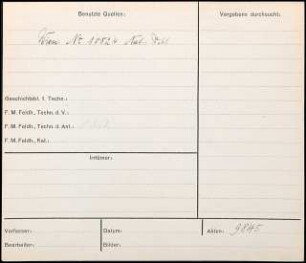 Benutzte Quellen:
Vergebens durchsucht:
Wien No 10824 Nat. Bibl.
Geschichtsbl. f. Techn.:
F. M. Feldh., Techn. d. V.:
F. M. Feldh., Techn. d. Ant.:
F. M. Feldh., Kal.:
Irrtümer:
Verfasser:
Datum:
Akten: 9845
Bearbeiter:
Bilder: